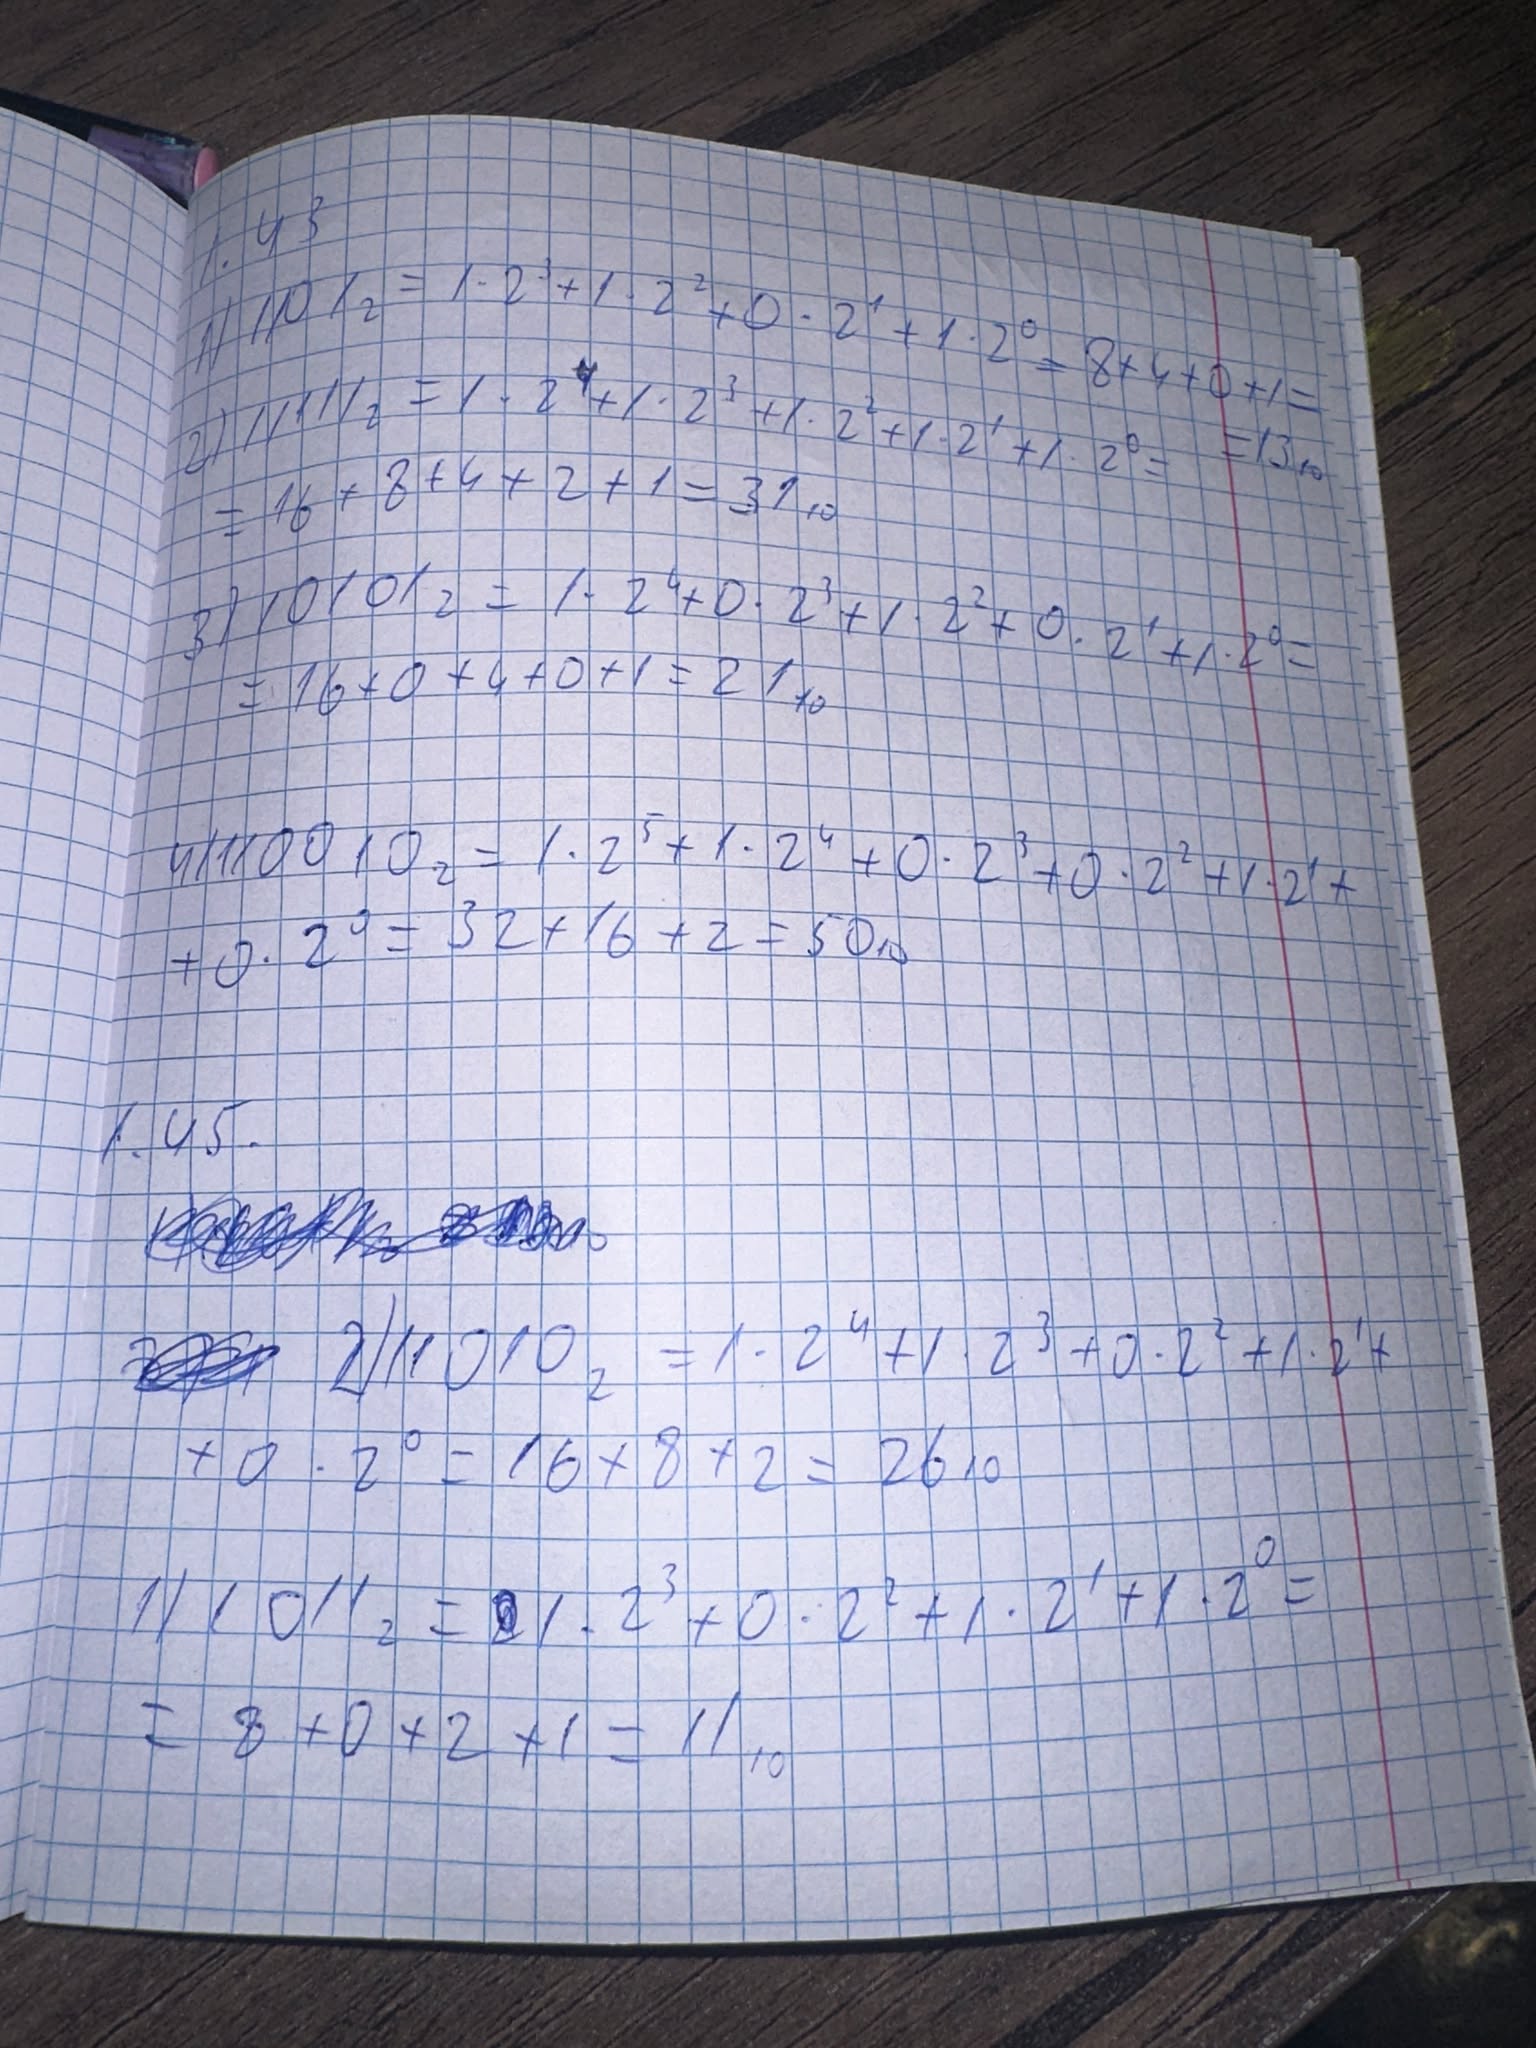 1.43
1) 1101₂ = 1·2³+1·2²+0·2¹+1·2⁰=8+4+0+1=
=13₁₀
2) 11111₂ = 1·2⁴+1·2³+1·2²+1·2¹+1·2⁰=
= 16+8+4+2+1=31₁₀
3) 10101₂ = 1·2⁴+0·2³+1·2²+0·2¹+1·2⁰=
= 16+0+4+0+1=21₁₀
4) 110010₂ = 1·2⁵+1·2⁴+0·2³+0·2²+1·2¹+
+0·2⁰=32+16+2=50₁₀
1.45.
2) 11010₂ =1·2⁴+1·2³+0·2²+1·2¹+
+0·2⁰=16+8+2=26₁₀
1) 1011₂ = 1·2³+0·2²+1·2¹+1·2⁰=
= 8+0+2+1=11₁₀